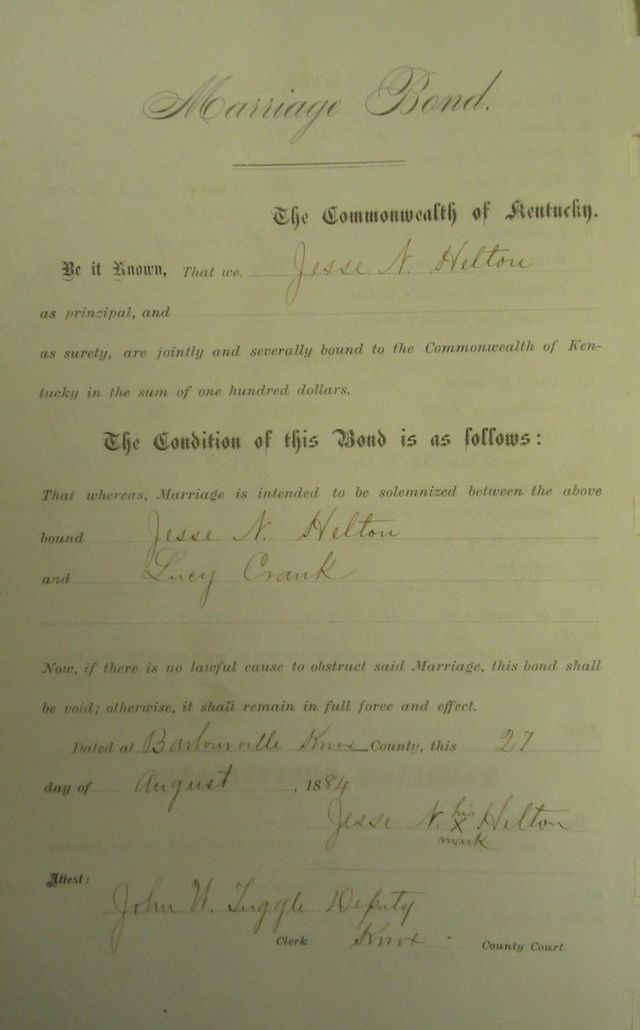 Marriage Bond.
The Commonwealth of Kentucky.
Be it Known, That we Jesse N. Helton
as principal, and
as surety, are jointly and severally bound to the Commonwealth of Ken-
tucky in the sum of one hundred dollars.
The Condition of this Bond is as follows:
That whereas, Marriage is intended to be solemnized between the above
bound Jesse N. Helton
and Lucy Crank
Now, if there is no lawful cause to obstruct said Marriage, this bond shall
be void; otherwise, it shall remain in full force and effect.
Dated at Barbourville Knox County, this 27
day of August, 1884
Jesse N. his X mark Helton
Attest:
John W. Tuggle Deputy
Clerk Knox County Court